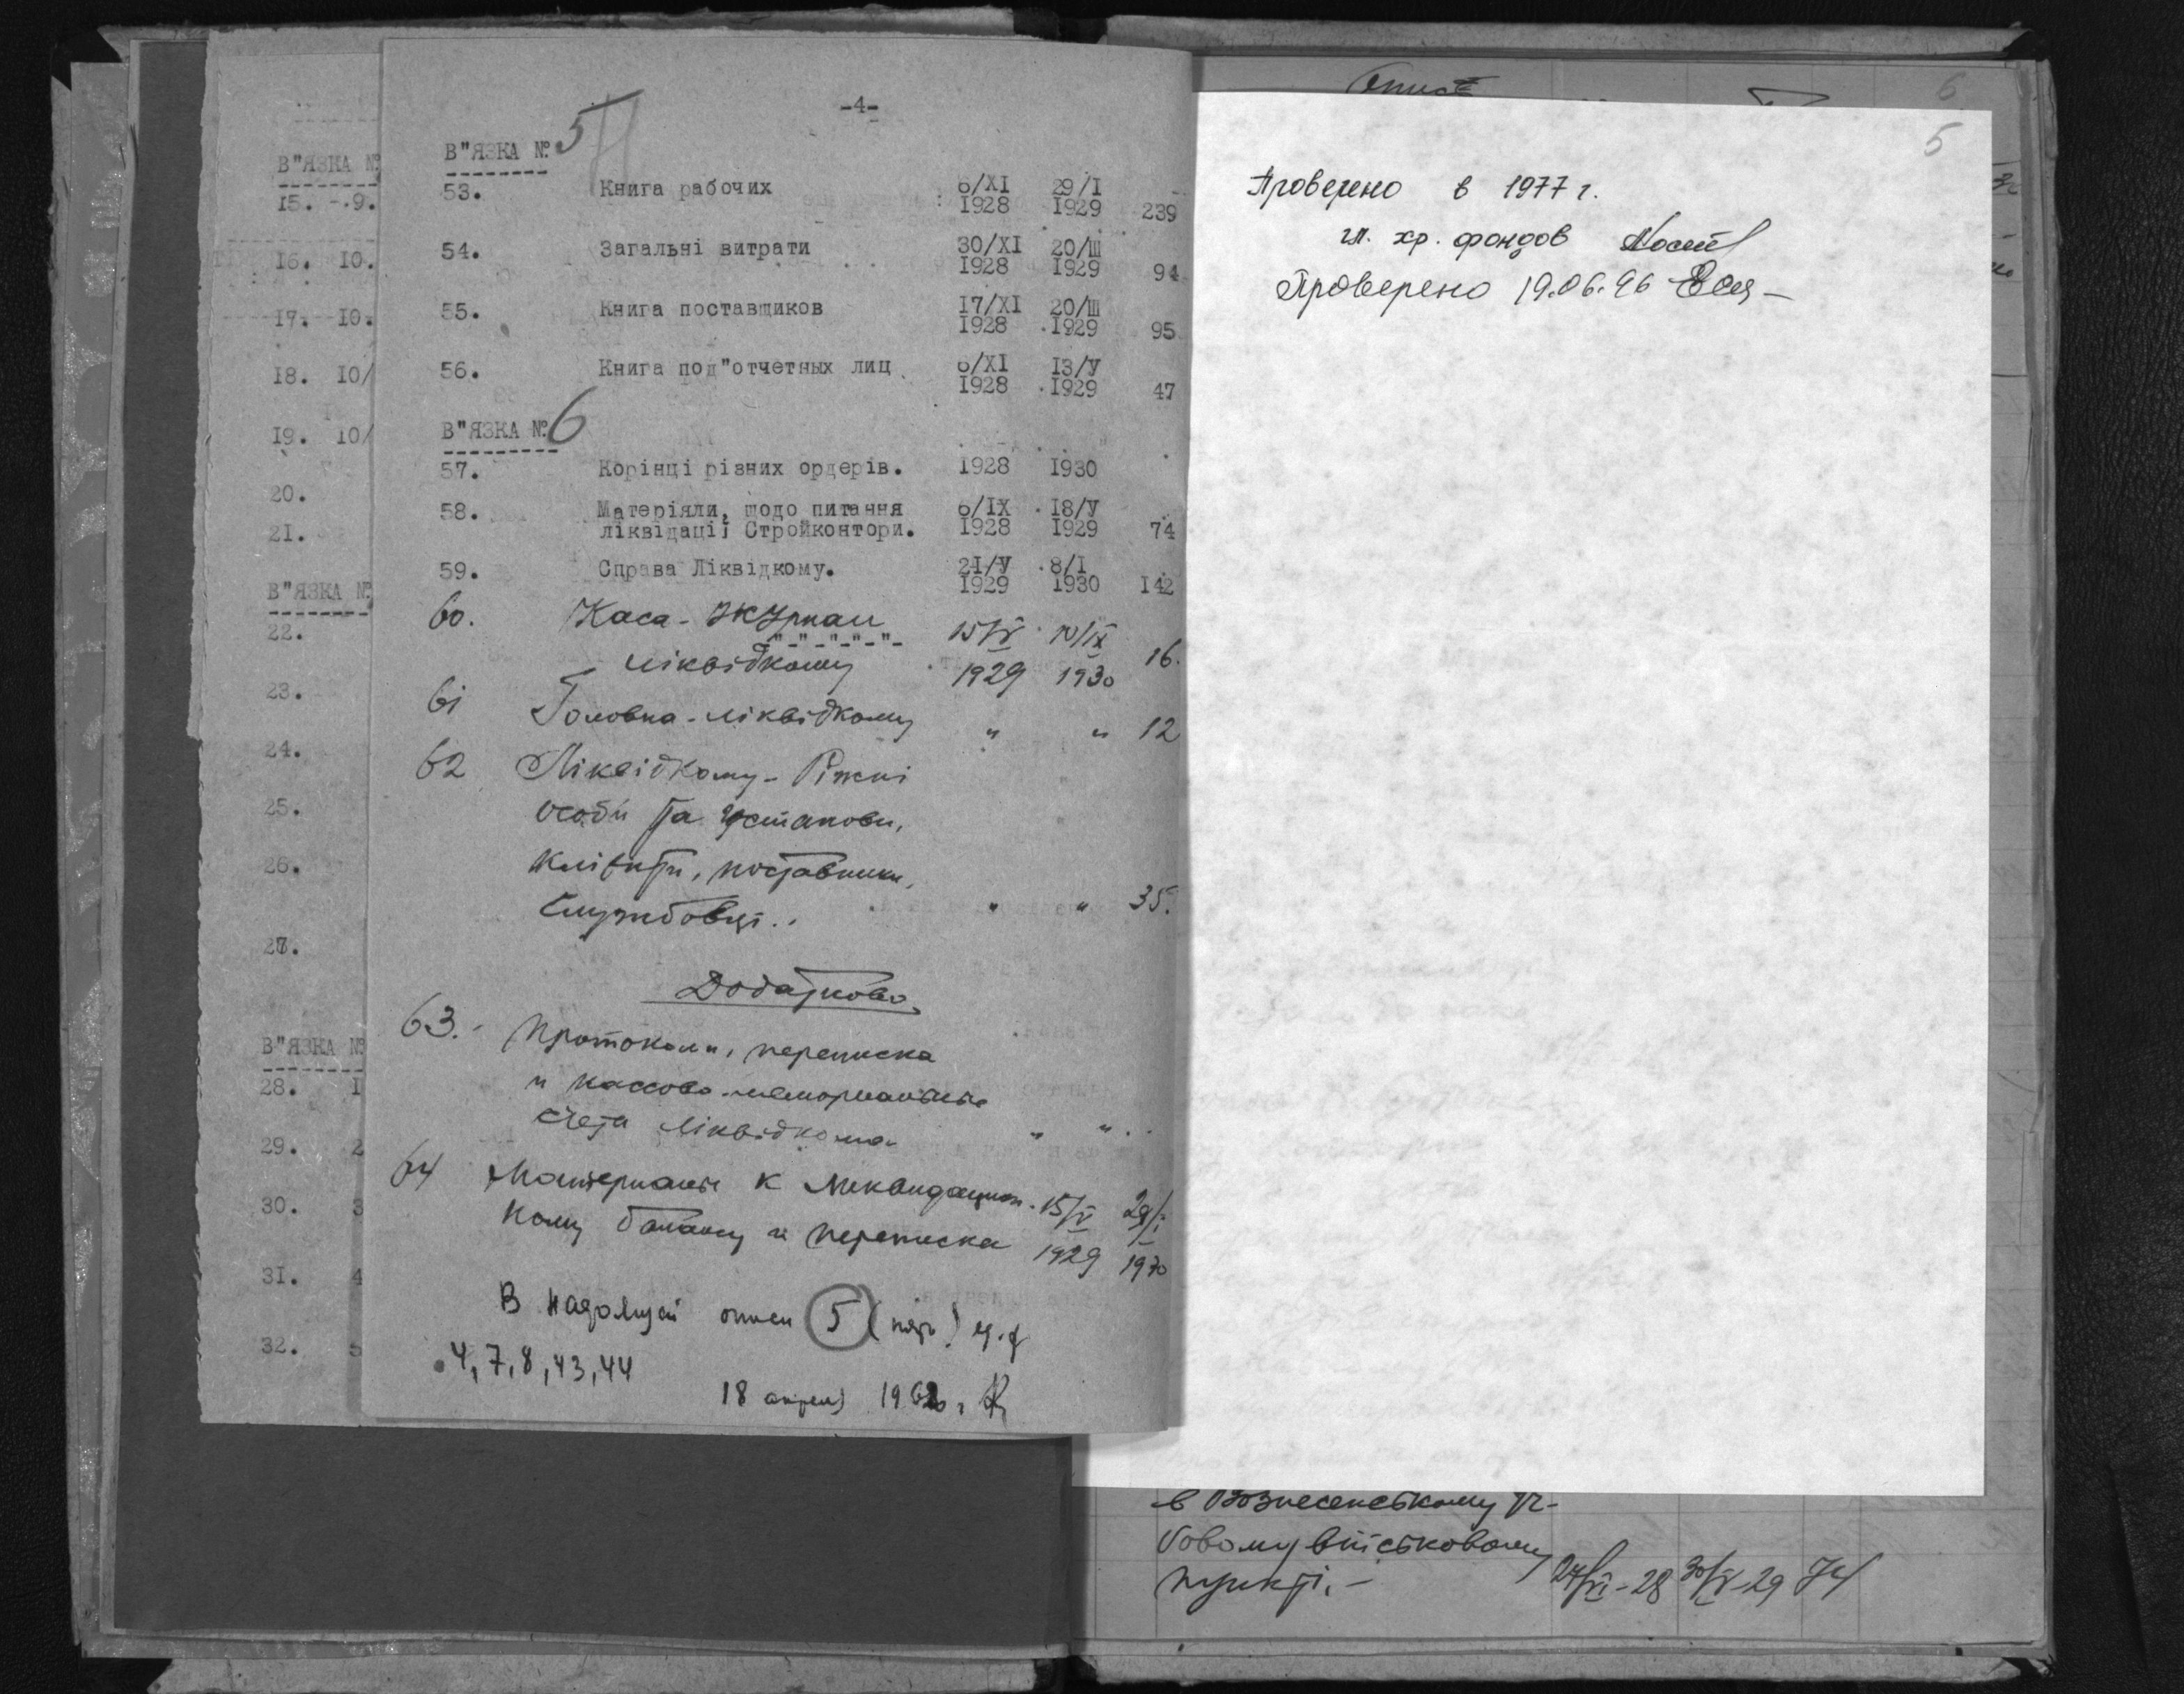 -4-
В"ЯЗКА № 5
53. Книга рабочих 6/XI 29/I
1928 1929 239
54. Загальні витрати 30/XI 20/Ш
1928 1929 94
55. Книга поставщиков 17/XI 20/Ш
1928 1929 95
56. Книга под"отчетных лиц 6/XI 13/У
1928 1929 47
В"ЯЗКА № 6
57. Корінці різних ордерів. 1928 1930
58. Матеріяли, щодо питання 6/IX 18/У
ліквідації Стройконтори. 1928 1929 74
59. Справа Ліквідкому. 21/У 8/I
1929 1930 142
60. Каса-Журнал 15/V 10/IX
-"-"-"-"-"-
Ліквідкому 1929 1930 16.
61 Головна-Ліквідкому " " 12
62 Ліквідкому-Ріжні
особи та установи,
клієнти, поставники,
службовці. " " 35.
Додатково.
63.- Протоколи, переписка
и кассово-мемориальные
счета Ліквідкома " "
64 Материалы к ликвидацион- 15/V 29/I
ному балансу и переписка 1929 1930
В наличии описи 5 (пять) ед. х
4, 7, 8, 43, 44
18 апреля 1962 г.
В"ЯЗКА №
15. -.9.
16. 10.
17. 10.
18. 10/
19. 10/
20.
21.
В"ЯЗКА №
22.
23.
24.
25.
26.
27.
В"ЯЗКА №
28. 1
29. 2
30. 3
31. 4
32. 5
6
5
Проверено в 1977 г.
гл. хр. фондов
Проверено 19.06.96
в Вознесенському
військовому
пункті.- 24/VI-28 30/IV-29 74